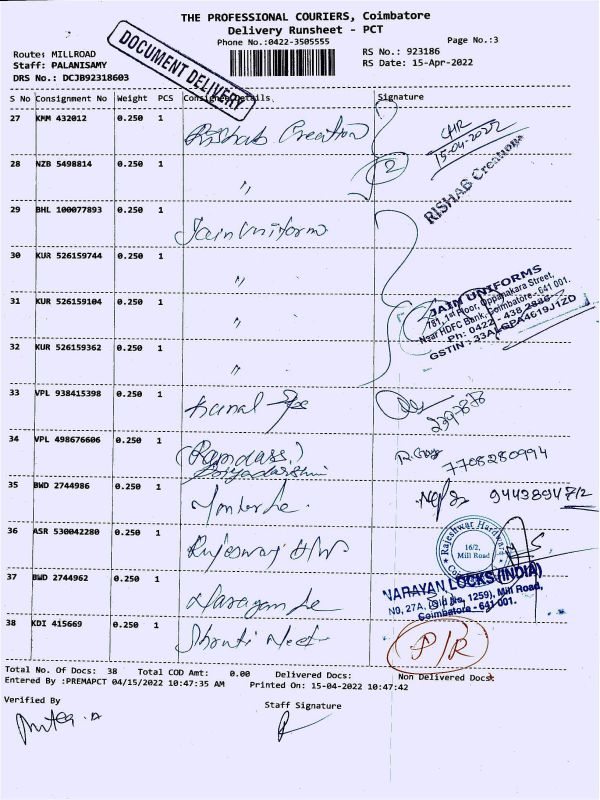 THE PROFESSIONAL COURIERS, Coimbatore
Delivery Runsheet - PCT
Phone No.:0422-3505555
Page No.:3
Route: MILLROAD
Staff: PALANISAMY
DRS No.: DCJB92318603
DOCUMENT DELIVERY
RS No.: 923186
RS Date: 15-Apr-2022
S No Consignment No Weight PCS Consignee Details Signature
27 KMM 432012 0.250 1 Rishab Creation
15-04-2022
RISHAB Creations
28 NZB 5498814 0.250 1 " 2
29 BHL 100077893 0.250 1 Jain Uniforms
30 KUR 526159744 0.250 1 "
31 KUR 526159104 0.250 1 "
JAIN UNIFORMS
781, 1st Floor, Oppanakara Street,
Near HDFC Bank, Coimbatore - 641 001.
Ph: 0422 - 438 2886
GSTIN : 33AGPA4619J1ZD
32 KUR 526159362 0.250 1 "
33 VPL 938415398 0.250 1
34 VPL 498676606 0.250 1 (Ramdass)
Priyadarshini
7708280994
35 BWD 2744986 0.250 1
36 ASR 530042280 0.250 1 Rajeswari H/W
Rajeshwar Hardware
16/2,
Mill Road
37 BWD 2744962 0.250 1 Narayan
NARAYAN LOCKS (INDIA)
NO, 27A, (Old No, 1259), Mill Road,
Coimbatore - 641 001.
38 KDI 415669 0.250 1 Shruti
P/R
Total No. Of Docs: 38 Total COD Amt: 0.00 Delivered Docs: Non Delivered Docs:
Entered By :PREMAPCT 04/15/2022 10:47:35 AM Printed On: 15-04-2022 10:47:42
Verified By
Staff Signature